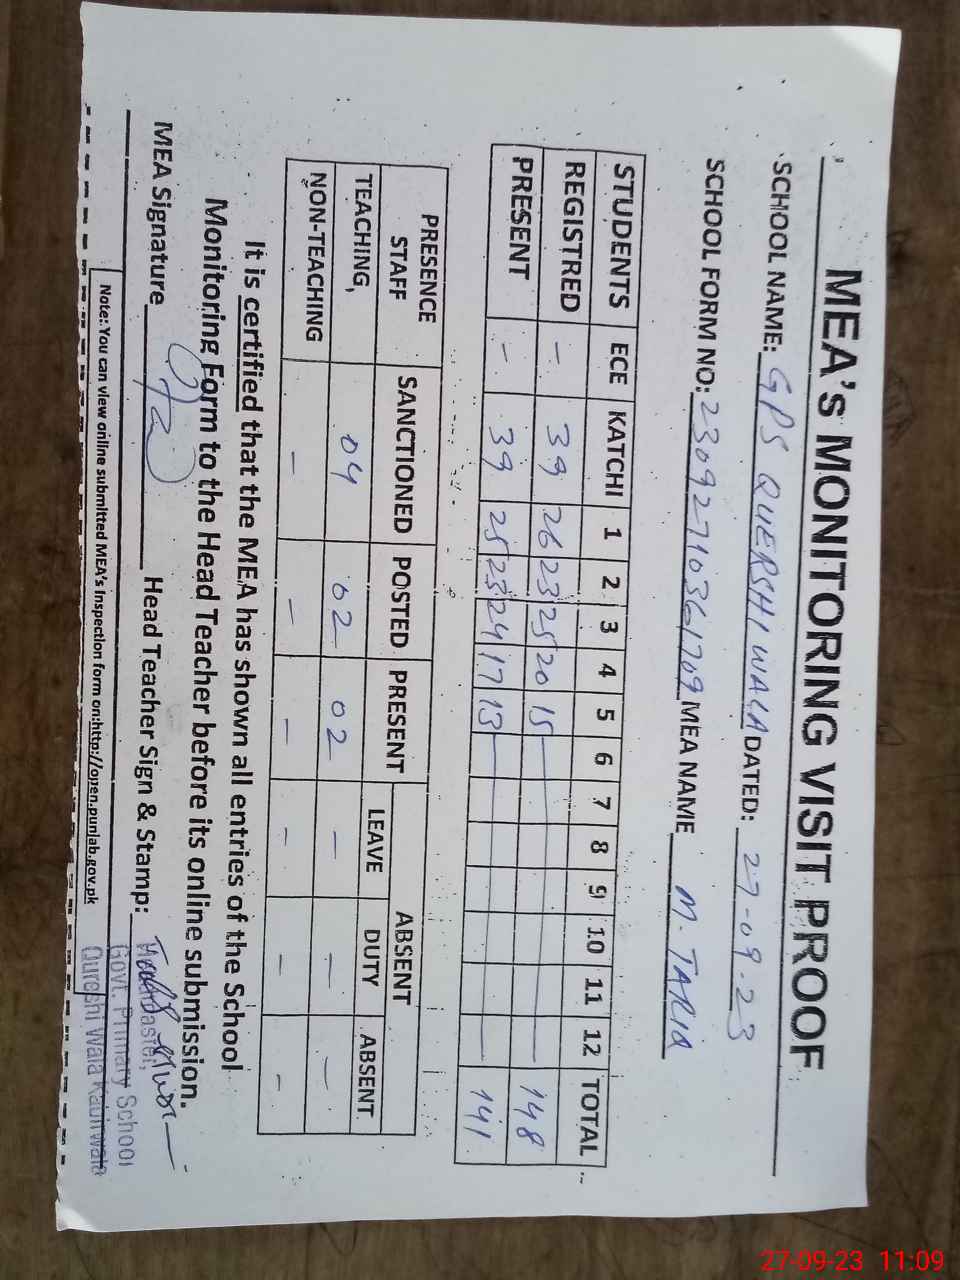 MEA's MONITORING VISIT PROOF
SCHOOL NAME: GPS QUERSHI WALA DATED: 27-09-23
SCHOOL FORM NO: 23092710361709 MEA NAME M. TARIQ
STUDENTS ECE KATCHI 1 2 3 4 5 6 7 8 9 10 11 12 TOTAL
REGISTRED - 39 26 23 25 20 15 148
PRESENT - 39 25 23 24 17 13 141
PRESENCE STAFF SANCTIONED POSTED PRESENT ABSENT
LEAVE DUTY ABSENT
TEACHING, 04 02 02 - - -
NON-TEACHING - - - - - -
It is certified that the MEA has shown all entries of the School
Monitoring Form to the Head Teacher before its online submission.
MEA Signature Head Teacher Sign & Stamp:
Govt. Primary School
Qureshi Wala Kabirwala
Note: You can view online submitted MEA's Inspection form on:http://open.punjab.gov.pk
27-09-23 11:09